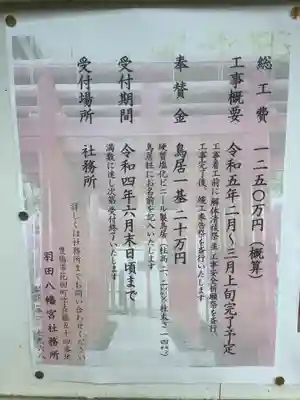 総工費　一二五〇万円（概算）
工事概要　令和五年二月～三月上旬完了予定
工事着工前に解体清祓祭並工事安全祈願祭を斎行
工事完了後、竣工奉告祭を斎行いたします
奉賛金　鳥居一基二十万円
硬質塩化ビニール製鳥居
鳥居柱にお名前を記入いたします
受付期間　令和四年六月末日頃まで
満数に達し次第受付終了いたします
受付場所　社務所
詳しくは社務所までお問い合わせください
羽田八幡宮社務所